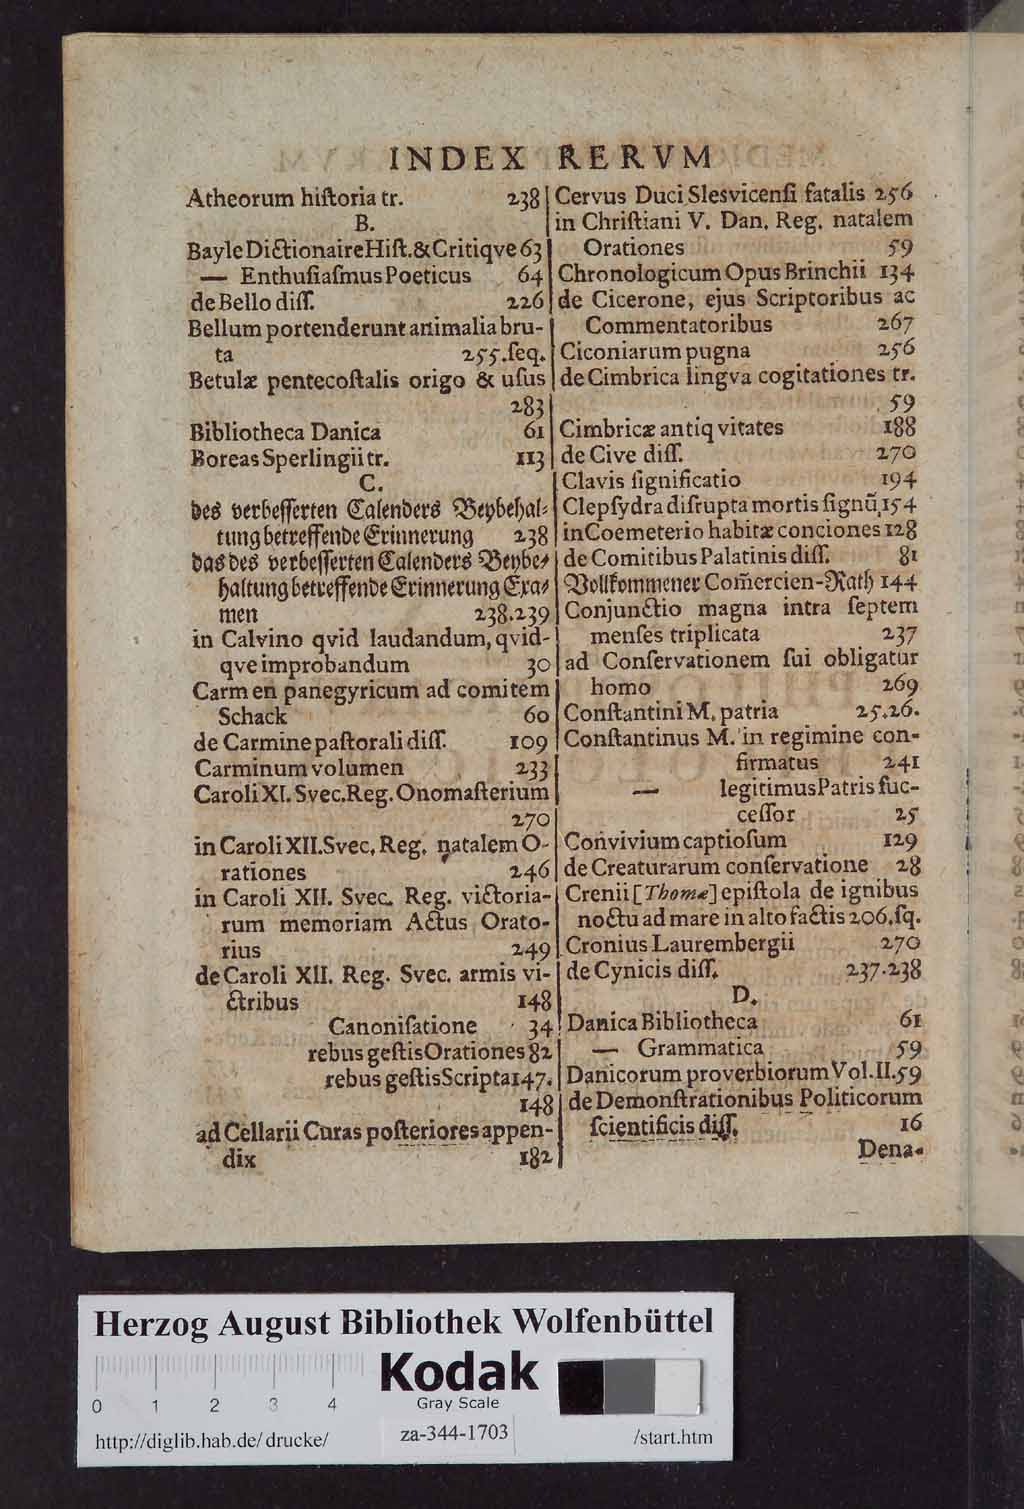 INDEX RERVM
Atheorum hiſtoria tr. 238
B.
Bayle Dictionaire Hiſt. & Critiqve 63
— Enthuſiaſmus Poeticus 64
de Bello diſſ. 226
Bellum portenderunt animalia bru-
ta 255.ſeq.
Betulæ pentecoſtalis origo & uſus
283
Bibliotheca Danica 61
Boreas Sperlingii tr. 113
C.
des verbeſſerten Calenders Beybehal-
tung betreffende Erinnerung 238
das des verbeſſerten Calenders Beybe-
haltung betreffende Erinnerung Exa-
men 238.239
in Calvino qvid laudandum, qvid-
qve improbandum 30
Carmen panegyricum ad comitem
Schack 60
de Carmine paſtorali diſſ. 109
Carminum volumen 233
Caroli XI. Svec. Reg. Onomaſterium
270
in Caroli XII. Svec. Reg. natalem O-
rationes 246
in Caroli XII. Svec. Reg. victoria-
rum memoriam Actus Orato-
rius 249
de Caroli XII. Reg. Svec. armis vi-
ctribus 148
Canoniſatione 34
rebus geſtis Orationes 82
rebus geſtis Scripta 147.
148
ad Cellarii Curas poſteriores appen-
dix 182
Cervus Duci Slesvicenſi fatalis 256
in Chriſtiani V. Dan. Reg. natalem
Orationes 59
Chronologicum Opus Brinchii 134
de Cicerone, ejus Scriptoribus ac
Commentatoribus 267
Ciconiarum pugna 256
de Cimbrica lingva cogitationes tr.
59
Cimbricæ antiqvitates 188
de Cive diſſ. 270
Clavis ſignificatio 194
Clepſydra diſrupta mortis ſignũ 154
in Coemeterio habitæ conciones 128
de Comitibus Palatinis diſſ. 81
Vollkommener Com̃ercien-Rath 144
Conjunctio magna intra ſeptem
menſes triplicata 237
ad Conſervationem ſui obligatur
homo 269
Conſtantini M. patria 25.26.
Conſtantinus M. in regimine con-
firmatus 241
— legitimus Patris ſuc-
ceſſor 25
Convivium captioſum 129
de Creaturarum conſervatione 28
Crenii [Thomæ] epiſtola de ignibus
noctu ad mare in alto factis 206.ſq.
Cronius Laurembergii 270
de Cynicis diſſ. 237.238
D.
Danica Bibliotheca 61
— Grammatica 59
Danicorum proverbiorum Vol. II. 59
de Demonſtrationibus Politicorum
ſcientificis diſſ. 16
Dena-
Herzog August Bibliothek Wolfenbüttel
Kodak
Gray Scale
0 1 2 3 4
http://diglib.hab.de/drucke/ za-344-1703 /start.htm